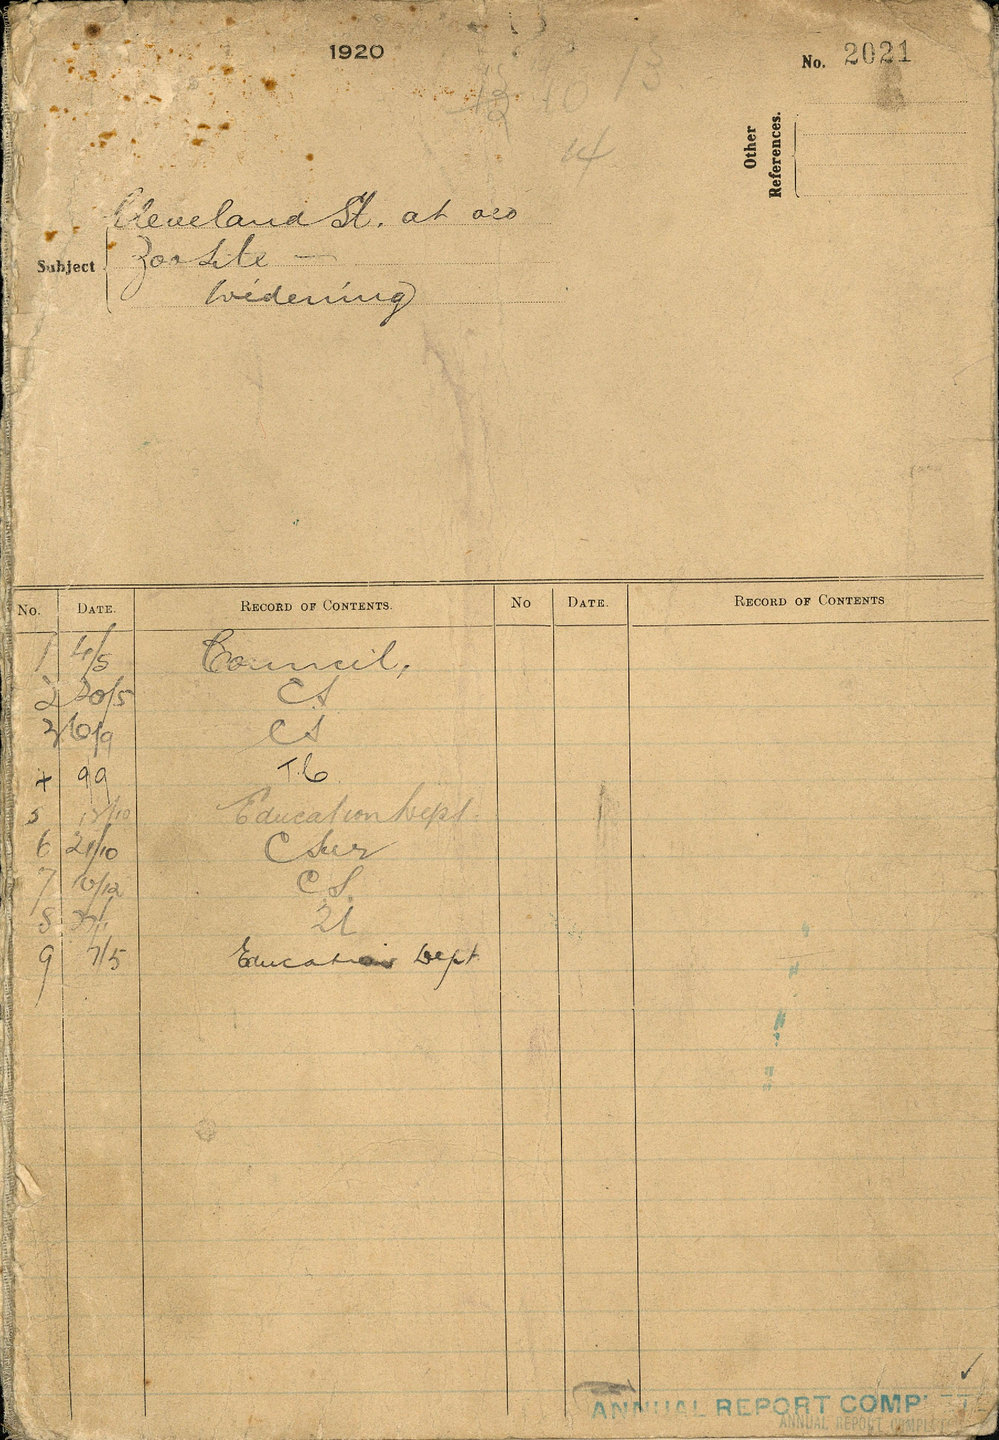 1920
No. 2021
13
14
Other References.
Subject
Cleveland St. at
Zoo Site —
Widening
No. DATE. RECORD OF CONTENTS. No DATE. RECORD OF CONTENTS
1 4/5 Council,
2 20/5 CS
3 6/9 CS
4 99 T.C
5 12/10 Education Dept.
6 21/10 C Sur
7 10/12 C.S.
8
9 7/5 Education Dept
ANNUAL REPORT COMPLETE
ANNUAL REPORT COMPLETE